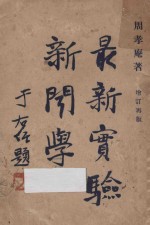 周孝庵著
增訂再版
最新實驗
新聞學
于右任題